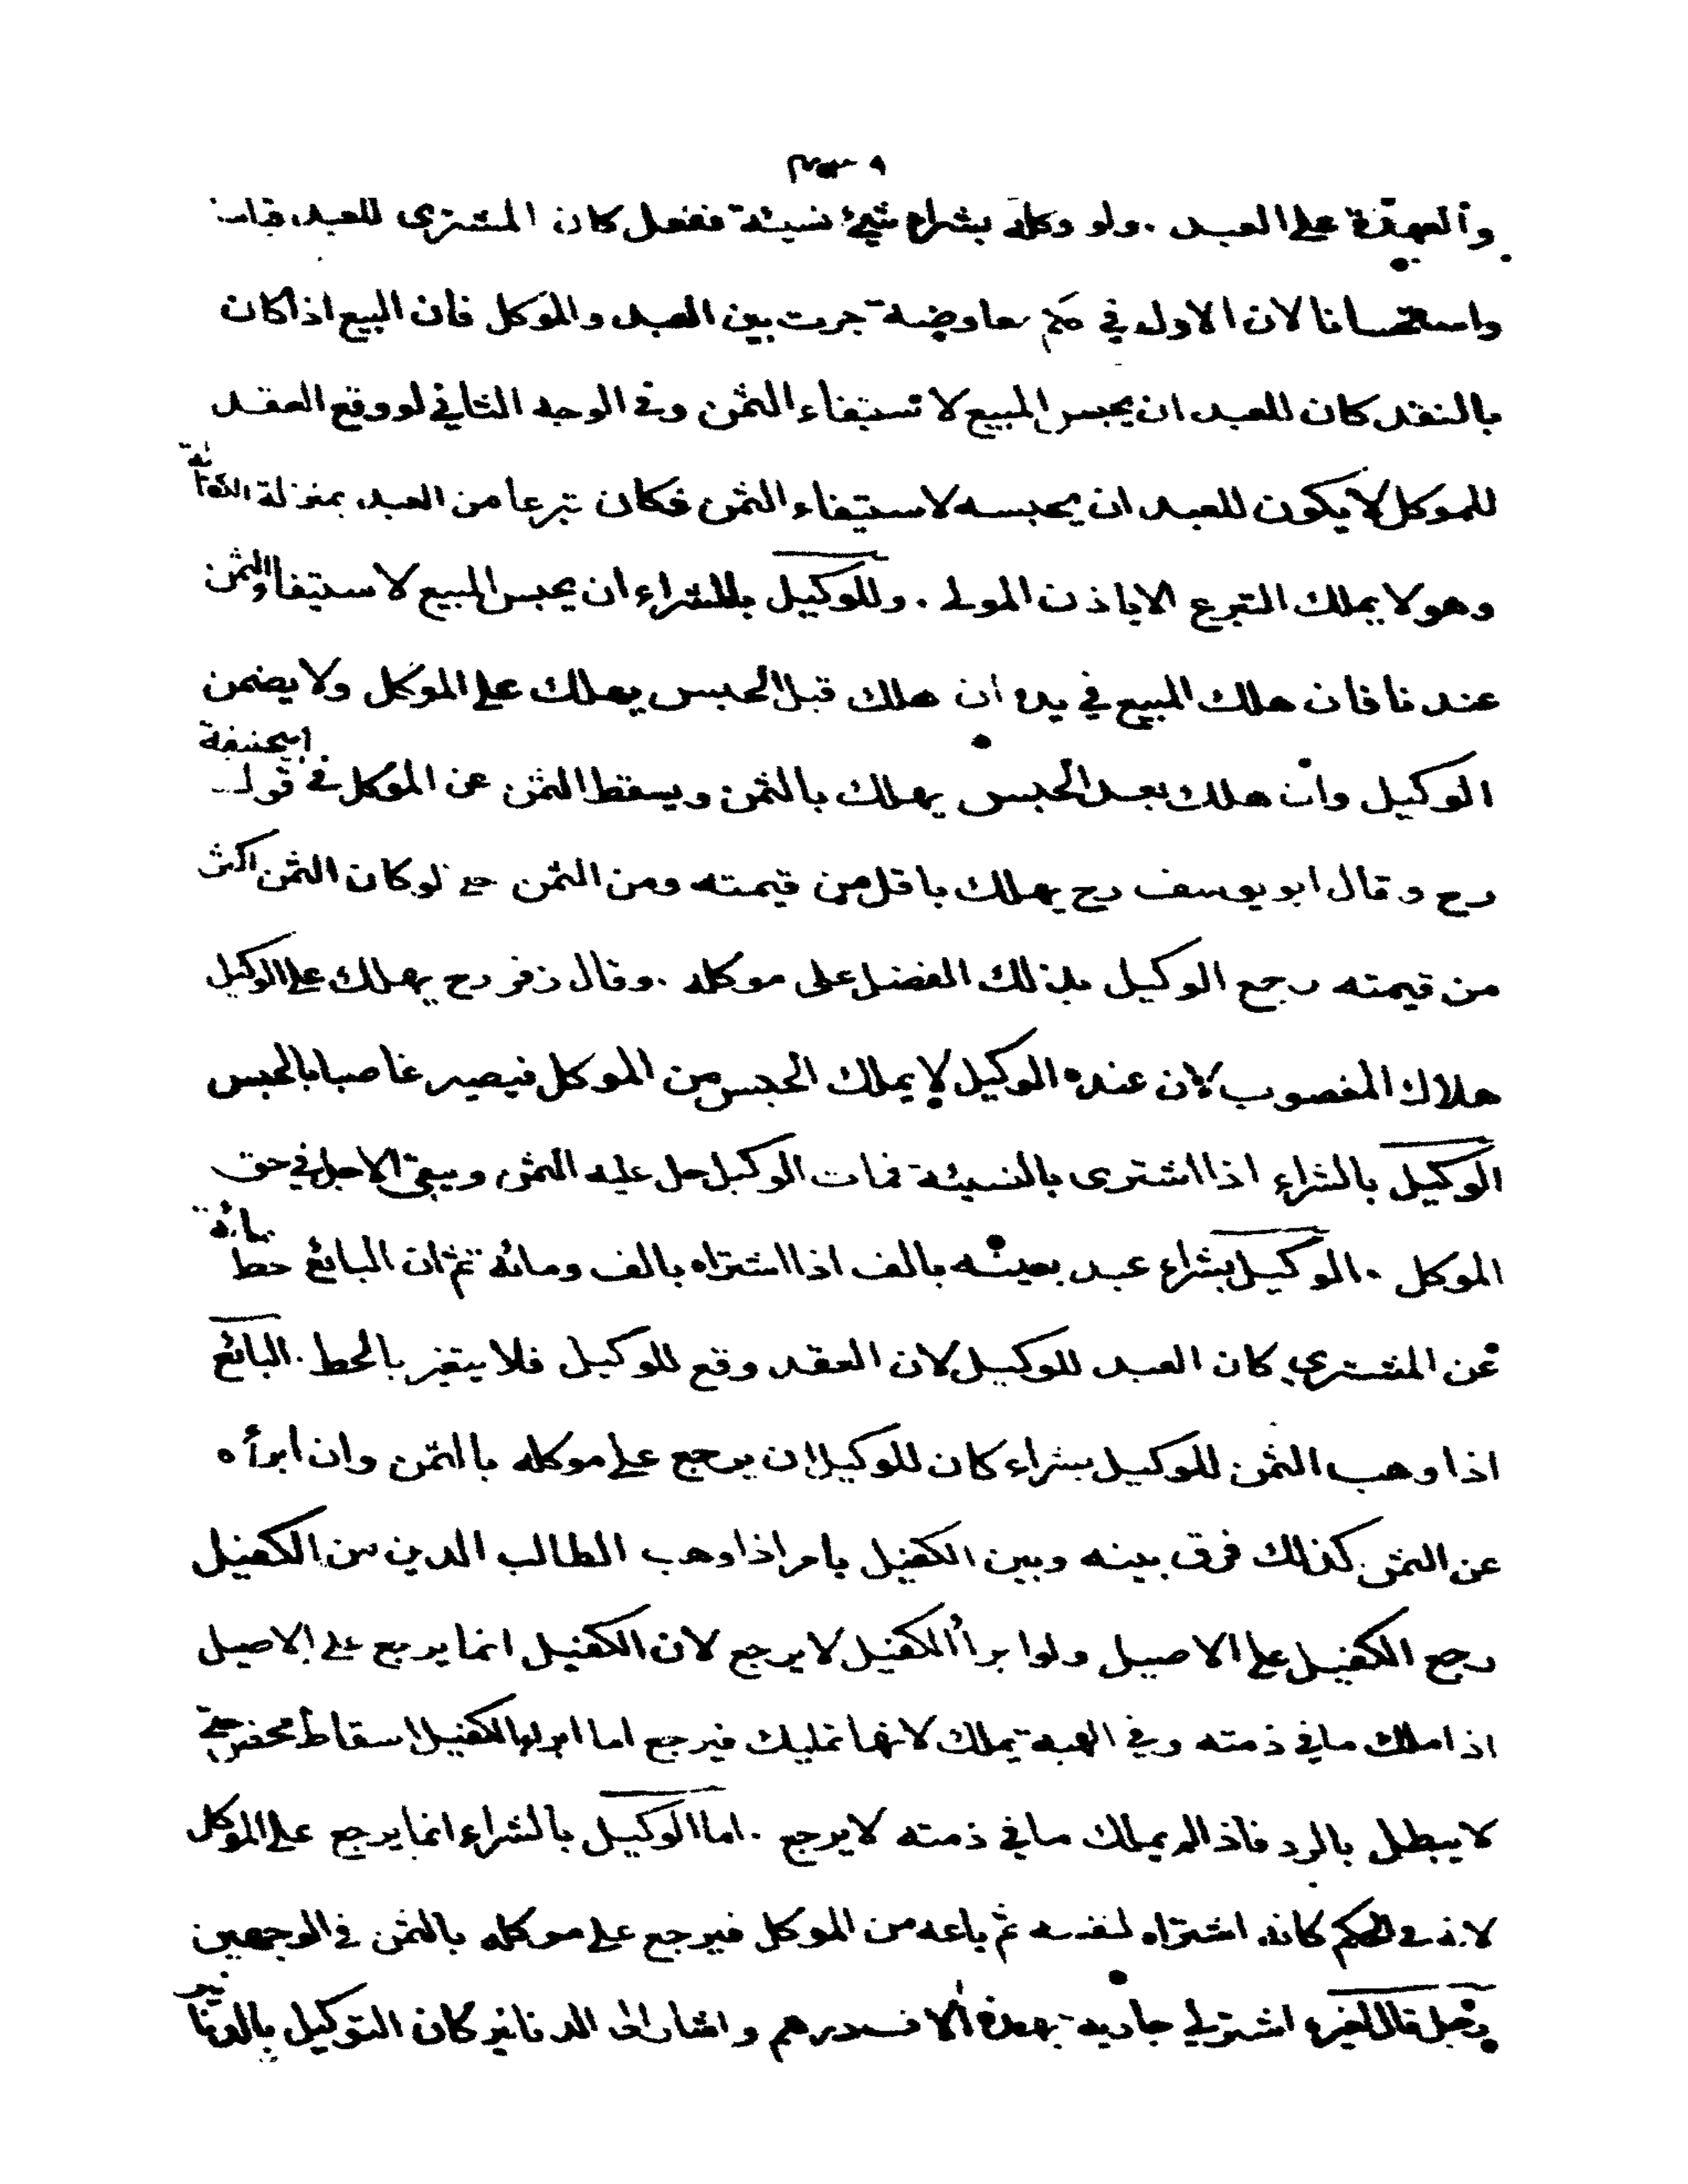 والعهدة على العبد . ولو وكله بشراء شيء نسيئة ففعل كان المشترى للعبد قياسا
واستحسانا لان الاول في حكم معاوضة جرت بين العبد والموكل فان البيع اذا كان
بالنقد كان للعبد ان يحبس المبيع لا ستيفاء الثمن وفي الوجه الثاني لو وقع العقد
للموكل لا يكون للعبد ان يحبسه لاستيفاء الثمن فكان تبرعا من العبد بمنزلة الكفالة
وهو لا يملك التبرع الا باذن المولى . وللوكيل بالشراء ان يحبس المبيع لاستيفاء الثمن
عندنا فان هلك المبيع في يده ان هلك قبل الحبس يهلك على الموكل ولا يضمن
الوكيل وان هلك بعد الحبس يهلك بالثمن ويسقط الثمن عن الموكل في قول ابيحنيفة
رح وقال ابو يوسف رح يهلك باقل من قيمته ومن الثمن حتى لو كان الثمن اكثر
من قيمته رجع الوكيل بذلك الفضل على موكله . وقال زفر رح يهلك على الوكيل
هلاك المغصوب لان عنده الوكيل لا يملك الحبس من الموكل فيصير غاصبا بالحبس
الوكيل بالشراء اذا اشترى بالنسيئة فمات الوكيل حل عليه الثمن ويبقى الاجل في حق
الموكل . الوكيل بشراء عبد بعينه بالف اذا اشتراه بالف ومائة ثم ان البائع حط مائة
عن المشتري كان العبد للوكيل لان العقد وقع للوكيل فلا يتغير بالحط . البائع
اذا وهب الثمن للوكيل بشراء كان للوكيل ان يرجع على موكله بالثمن وان ابرأه
عن الثمن كذلك فرق بينه وبين الكفيل بامر اذا وهب الطالب الدين من الكفيل
رجع الكفيل على الاصيل ولو ابرأ الكفيل لا يرجع لان الكفيل انما يرجع على الاصيل
اذا ملك ما في ذمته وفي الهبة يملك لانها تمليك فيرجع اما ابراء الكفيل اسقاط محض حتى
لا يبطل بالرد فاذا لم يملك ما في ذمته لا يرجع . اما الوكيل بالشراء انما يرجع على الموكل
لانه في الحكم كانه اشتراه لنفسه ثم باعه من الموكل فيرجع على موكله بالثمن في الوجهين
رجل قال لغيره اشتر لي جارية بهذه الالف درهم واشار الى الدنانير كان التوكيل بالدنانير